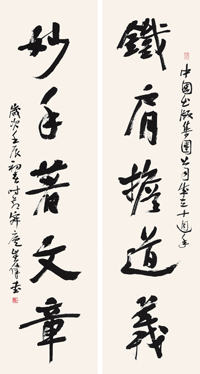 中國出版集團公司成立十週年
鐵肩擔道義
妙手著文章
歲次壬辰初春